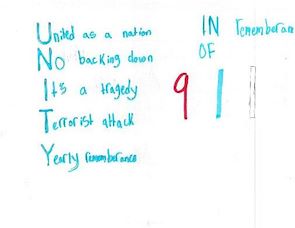 United as a nation
No backing down
It's a tragedy
Terrorist attack
Yearly rememberance
IN rememberan
OF
9 1 1